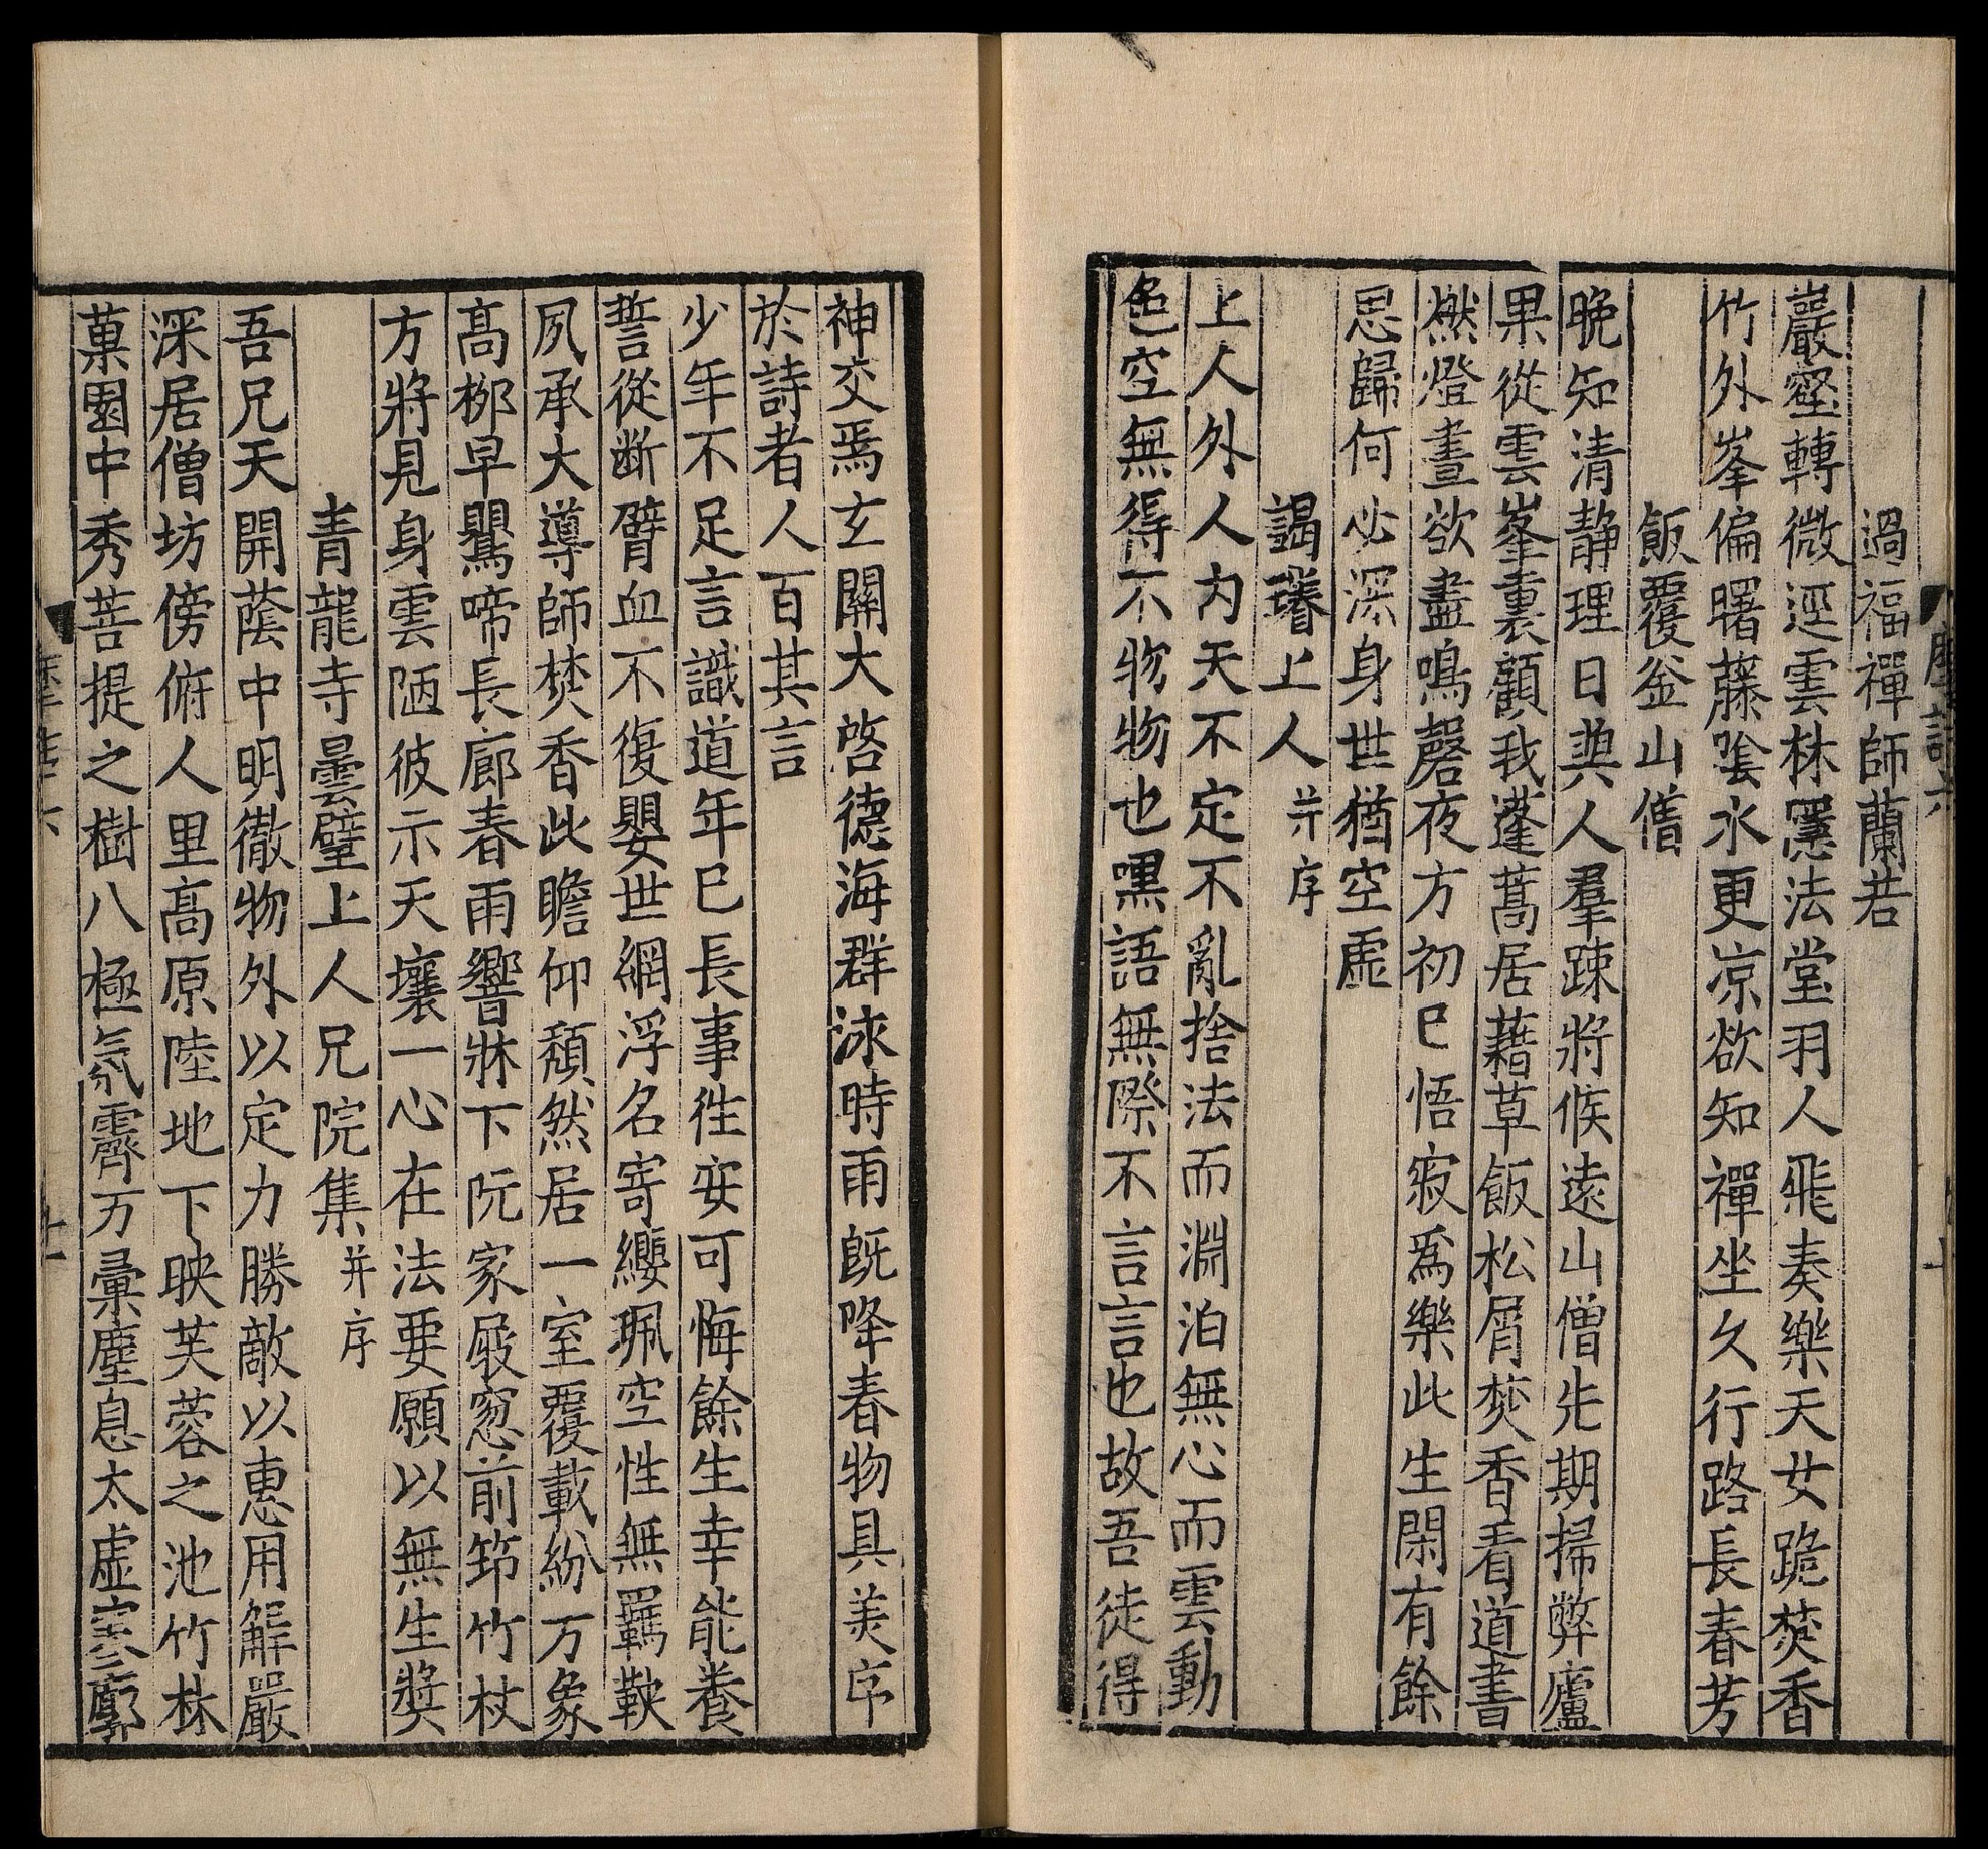 過福禪師蘭若
巖壑轉微逕雲林隱法堂羽人飛奏樂天女跪焚香
竹外峯偏曙藤陰水更凉欲知禪坐久行路長春芳
飯覆釜山僧
晚知清静理日與人羣踈將候遠山僧先期掃弊廬
果從雲峯裏顧我蓬蒿居藉草飯松屑焚香看道書
燃燈晝欲盡鳴磬夜方初已悟寂爲樂此生閑有餘
思歸何必深身世猶空虛
謁璿上人并序
上人外人内天不定不亂捨法而淵泊無心而雲動
色空無得不物物也嘿語無際不言言也故吾徒得
神交焉玄關大啓德海群泳時雨既降春物具美序
於詩者人百其言
少年不足言識道年已長事徃安可悔餘生幸能養
誓從断臂血不復嬰世網浮名寄纓珮空性無羈鞅
夙承大導師焚香此瞻仰頹然居一室覆載紛万象
高栁早鸎啼長廊春雨響牀下阮家屐窓前筇竹杖
方將見身雲陋彼示天壤一心在法要願以無生奬
青龍寺曇璧上人兄院集并序
吾兄天開蔭中明徹物外以定力勝敵以惠用解嚴
深居僧坊傍俯人里高原陸地下映芙蓉之池竹林
菓園中秀菩提之樹八極氛霽万彙塵息太虛寥廓